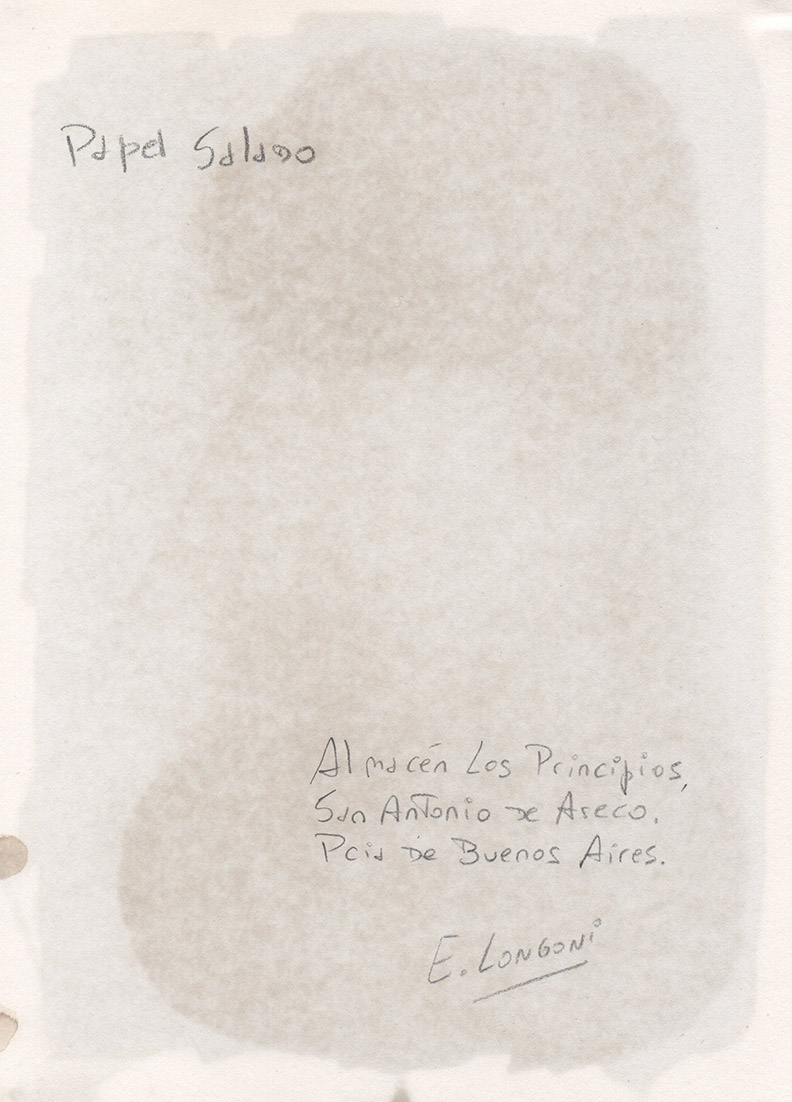 Papel Salado
Almacén Los Principios,
San Antonio de Areco.
Pcia de Buenos Aires.
E. Longoni